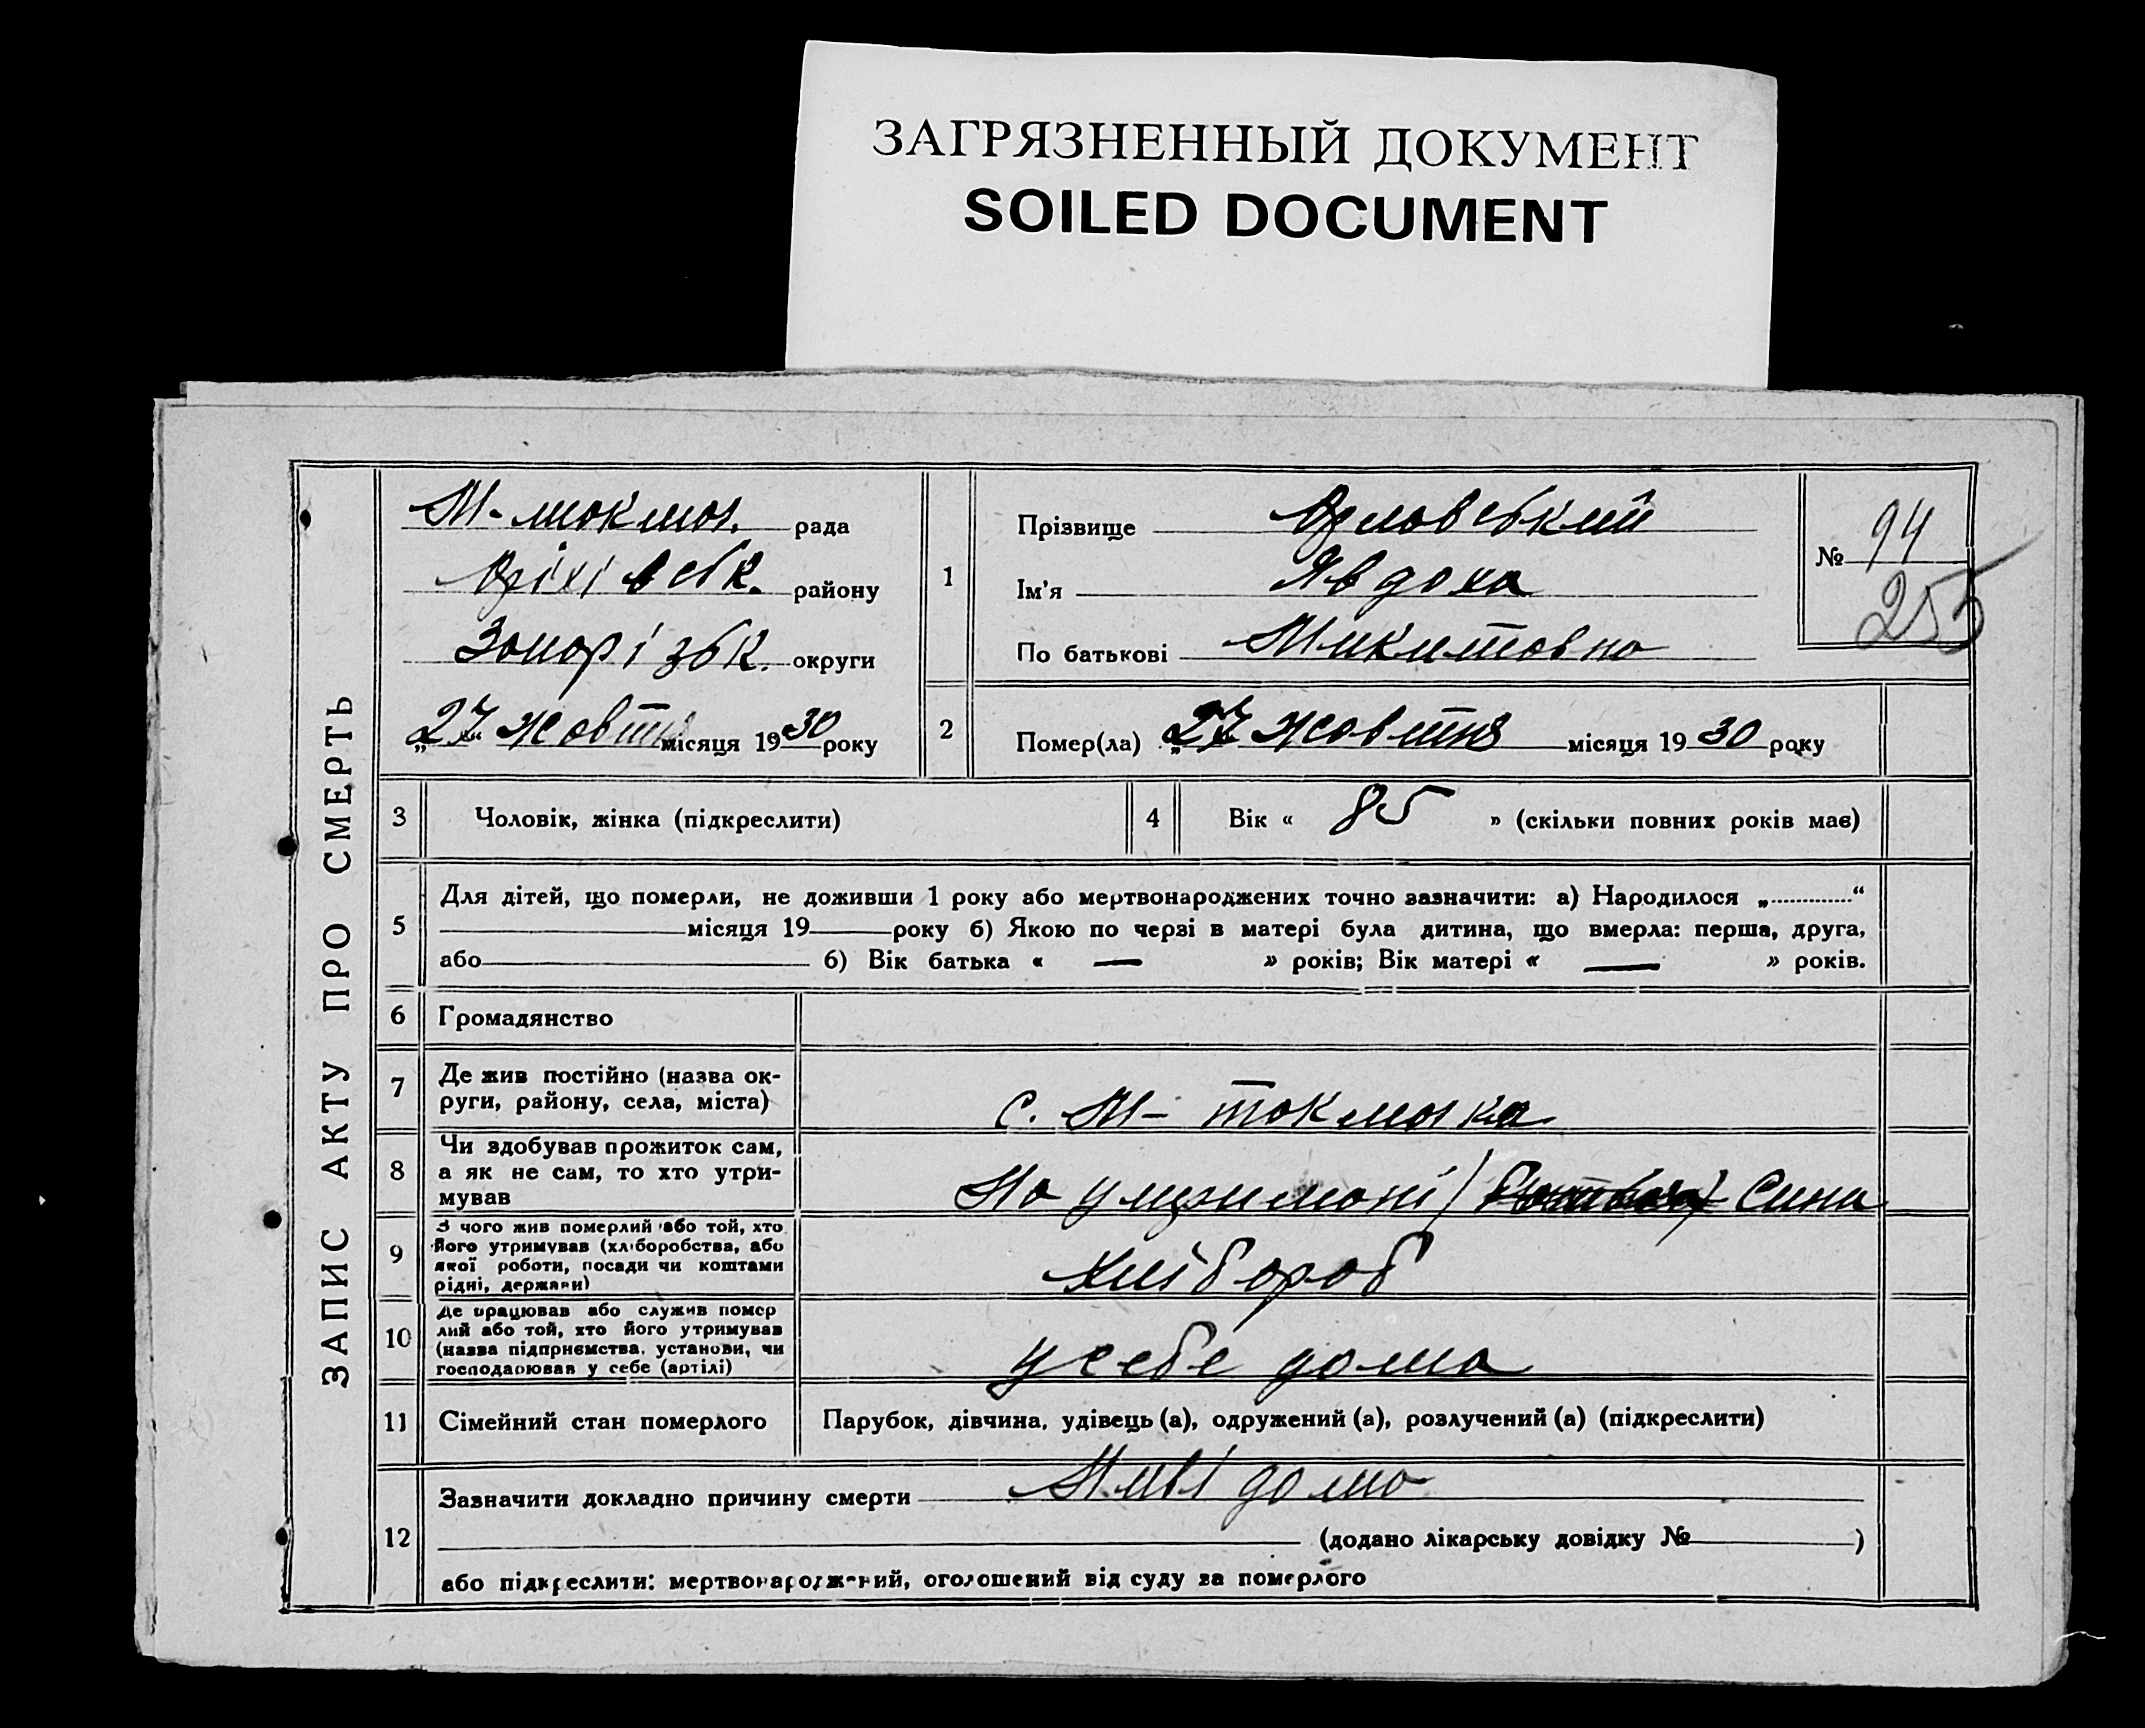 ЗАГРЯЗНЕННЫЙ ДОКУМЕНТ
SOILED DOCUMENT
ЗАПИС АКТУ ПРО СМЕРТЬ
М-токмач. рада
Оріхівськ. району
Запорізьк. округи
„27“ жовтня місяця 1930 року
1
Прізвище Орловський
Ім'я Явдоха
По батькові Микитовна
№ 94
255
2
Помер(ла) „27 жовтня місяця 1930 року
3 Чоловік, жінка (підкреслити)
4 Вік « 85 » (скільки повних років має)
5
Для дітей, що померли, не доживши 1 року або мертвонароджених точно зазначити: а) Народилося „ “
місяця 19 року б) Якою по черзі в матері була дитина, що вмерла: перша, друга,
або б) Вік батька « — » років; Вік матері « — » років.
6 Громадянство
7
Де жив постійно (назва ок-
руги, району, села, міста)
с. М-токмачка
8
Чи здобував прожиток сам,
а як не сам, то хто утри-
мував
На утримані Сина
9
З чого жив померлий або той, хто
його утримував (хліборобства, або
якої роботи, посади чи коштами
рідні, держави)
Хлібороб
10
Де працював або служив помер
лий або той, хто його утримував
(назва підприємства, установи, чи
господарював у себе (артілі)
у себе дома
11 Сімейний стан померлого Парубок, дівчина, удівець (а), одружений (а), розлучений (а) (підкреслити)
12
Зазначити докладно причину смерти
(додано лікарську довідку № )
або підкреслити: мертвонароджений, оголошений від суду за померлого